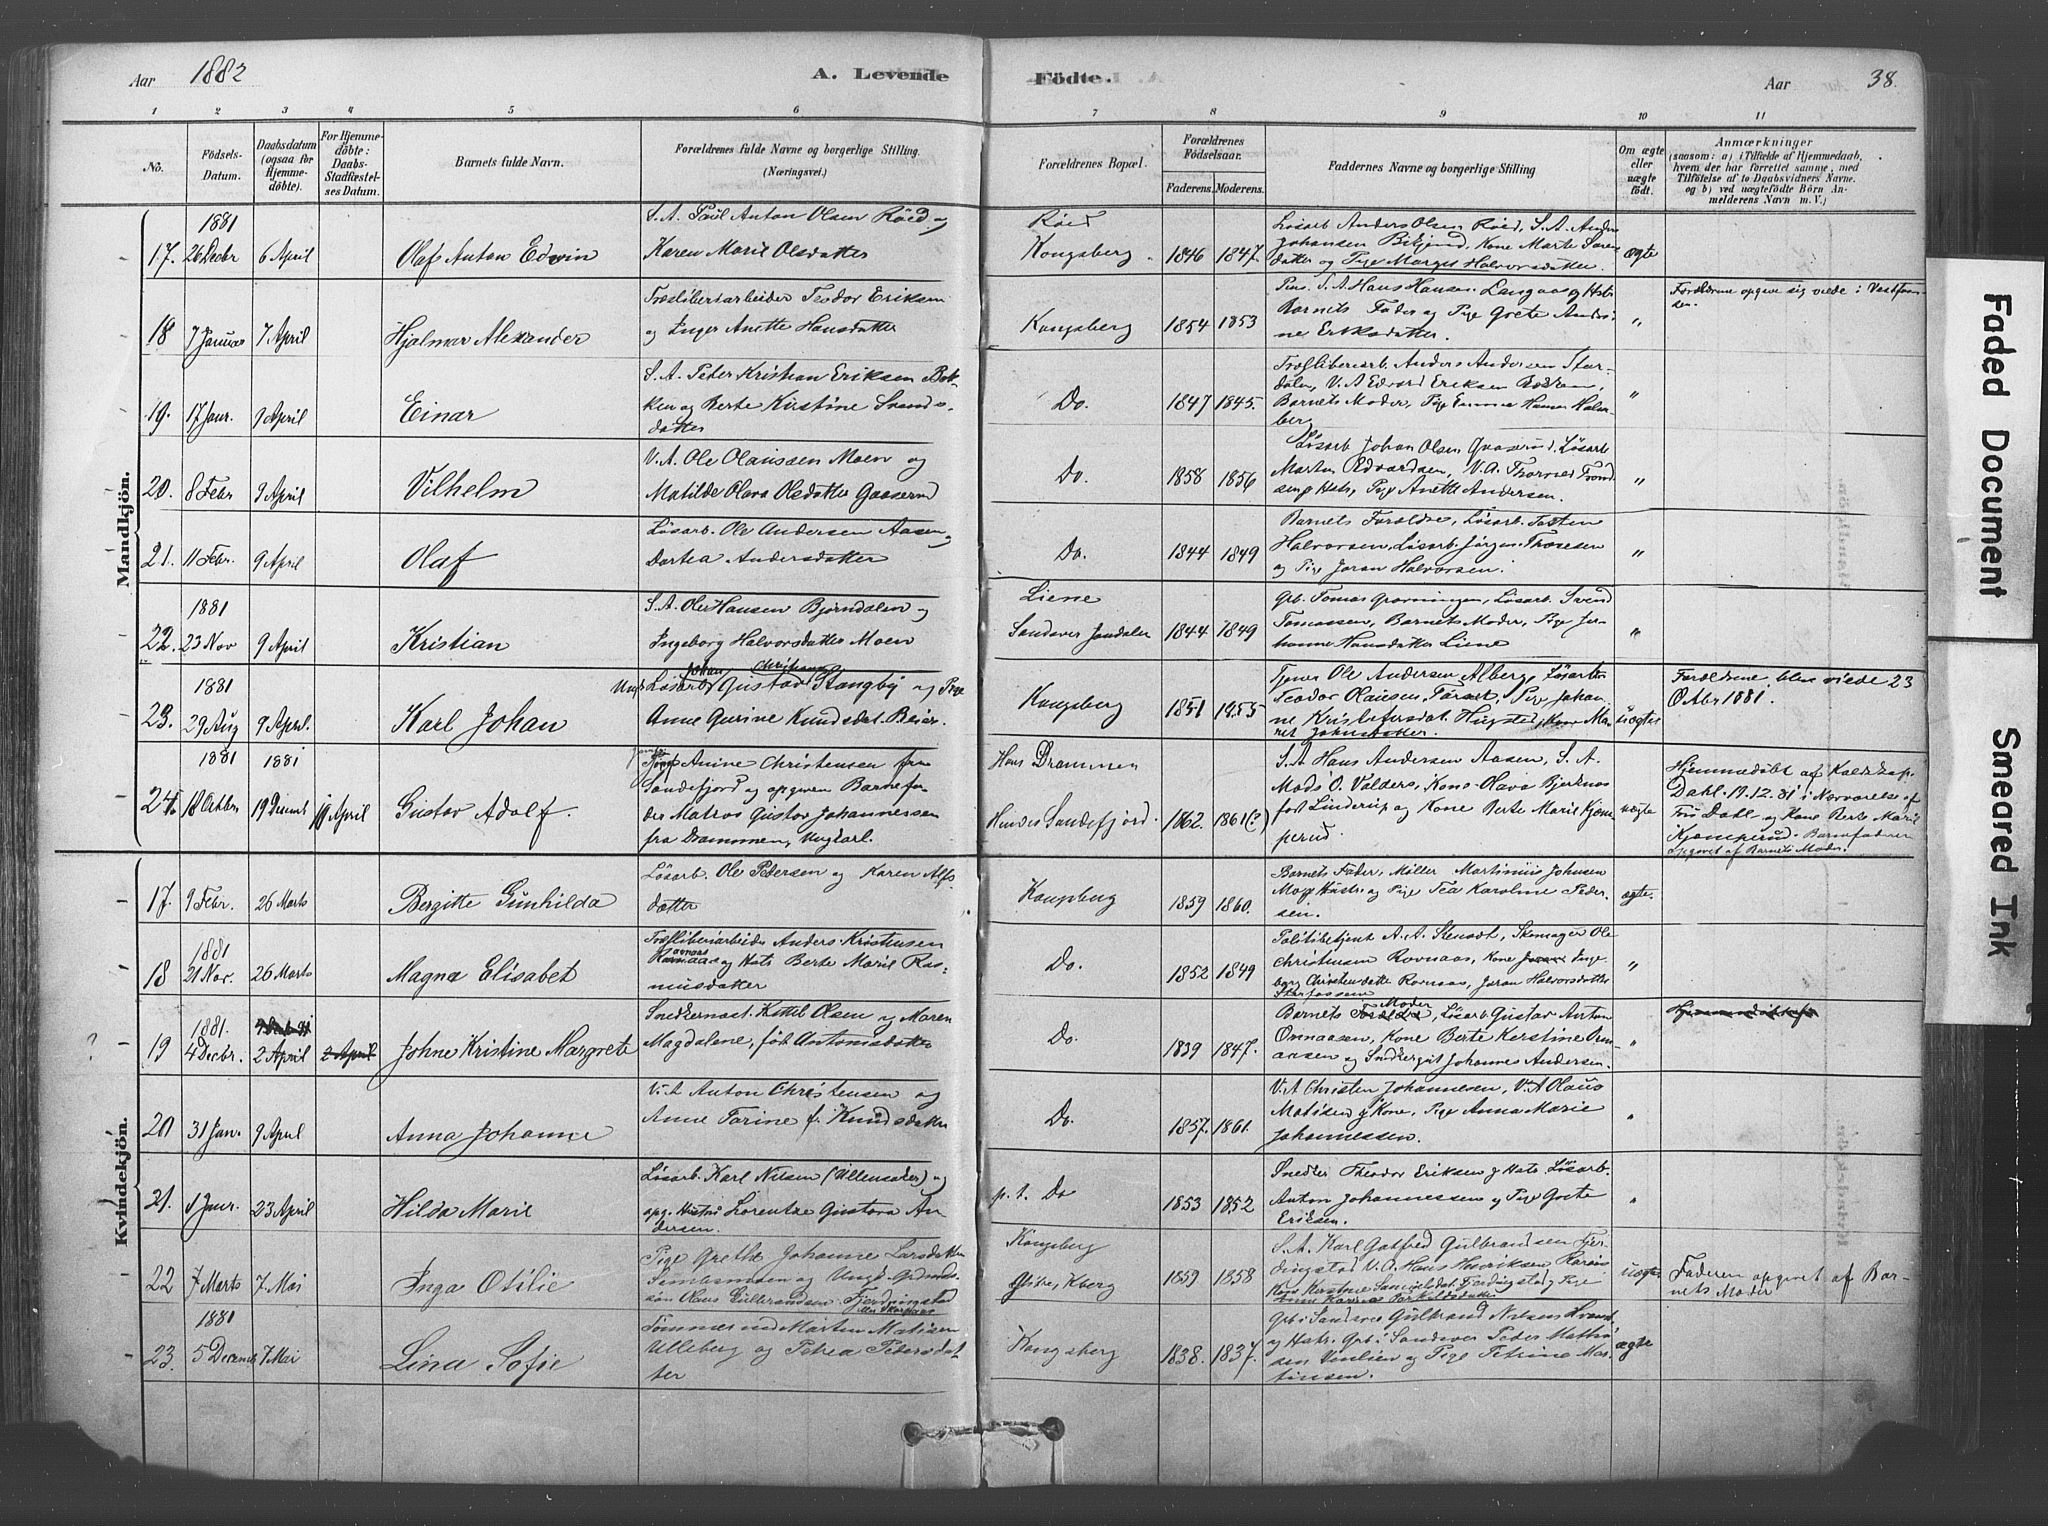 Aar 1882
A. Levende
Födte.
Aar
38.
1 2 3 4 5 6 7 8 9 10 11
No.
Födsels-
Datum.
Daabsdatum
(ogsaa for
Hjemme-
döbte).
For Hjemme-
döbte:
Daabs-
Stadfæstel-
ses Datum.
Barnets fulde Navn.
Forældrenes fulde Navne og borgerlige Stilling.
(Næringsvei.)
Forældrenes Bopæl.
Forældrenes
Födselsaar.
Faderens. Moderens.
Faddernes Navne og borgerlige Stilling
Om ægte
eller
uægte
födt.
Anmærkninger
(saasom: a) i Tilfælde af Hjemmedaab,
hvem der har forrettet samme, med
Tilföielse af to Daabsvidners Navne.
og b) ved uægtefödte Börn An-
melderens Navn m. V.)
Mandkjön.
1881
17. 26 Decbr 6 April Olaf Anton Edwin
S. A. Paul Anton Olsen Röed og
Karen Marie Olsdatter
Röed
Kongsberg 1846 1847
Lösarb Anders Olsen Röed, S. A. Anders
Johansen Kone Marte Soren
datter og Pige Margit Halvorsdatter.
ægte
18 7 Januar 7 April Hjalmar Alexander
Træsliberiarbeider Teodor Eriksen
og Inger Anette Hansdatter
Kongsberg 1854 1853
Pens. S. A. Hans Hansen Langaas og Hstr
Barnets Fader og Pige Grete Andri-
ne Eriksdatter.
"
Forældrene opgive sig viede i Vestfos-
sen.
19. 17 Janr. 9 April Einar
S. A. Peter Kristian Eriksen Bak-
ken og Berte Kirstine Svends-
datter
Do. 1847 1845.
Træsliberiarb. Anders Andersen Stor-
dalen, V. A. Edvard Eriksen
Barnets Moder, Pige Emma Hansen Holm-
berg
"
20. 8 Febr 9 April Vilhelm
V. A. Ole Olaussen Moen og
Matilde Olava Olsdatter Gaaserud
Do. 1858 1856
Lösarb Johan Olsen Gaaserud, Lösarb
Martin Edvardsen, V. A. Trond
sen og Hstr, Pige Anette Andersen.
"
21. 11 Febr. 9 April Olaf
Lösarb. Ole Andersen Aasen og
Dortea Andersdatter
Do. 1844 1849
Barnets Forældre, Lösarb. Tosten
Halvorsen, Lösarb Jörgen Thoresen
og Pige Joran Halvorsen.
"
1881
22. 23 Nov 9 April Kristian
S. A. Ole Hansen Björndalen og
Ingeborg Halvorsdatter Moen
Liene
Sandsvær Jondalen 1844 1849
Grb. Tomas Grosvningen, Lösarb. Svend
Tomassen, Barnets Moder, Pige Jo-
hanne Hansdatter Liene
"
1881
23. 29 Aug 9 April. Karl Johan
Johan Christian
Ungk Lösarb Gustav Stangeby og Pige
Anne Gurine Knudsdat. Beier
Kongsberg 1851 1855
Tjener Ole Andersen Alberg, Lösarb
Teodor Olausen, Pige Johan
ne Kristofersdat. Hugsted, Kone Ma-
ret Johnsdatter.
uægte
Forældrene blev viede 23
Oktbr 1881.
1881 1881
24. 18 Oktbr 19 Decemb 10 April Gustav Adolf.
Pige Anine Christensen fra
Sandefjord og opgiven Barnefa-
der Matros Gustav Johannessen
fra Drammen, Ungkarl.
Hans Drammen
Hendes Sandefjord. 1862. 1861(?)
S. A. Hans Andersen Aasen, S. A.
Mads O. Valders, Kone Olava Bjerknæs
fod Linderup og Kone Berte Marie Kjem-
perud
uægte
Hjemmedöbt af Kaldskap.
Dahl. 19.12.81 i Nærværelse af
Fru Dahl og Kone Berte Marie
Kjemperud. Barnefaderen
opgivet af Barnets Moder.
Kvindekjön.
17. 9 Febr. 26 Marts Bergitte Gunhilda
Lösarb. Ole Petersen og Karen Alfs-
datter
Kongsberg 1859 1860.
Barnets Fader, Möller Martinius Johnsen
Moe Hustru og Pige Tea Karoline Peder-
sen.
ægte.
1881
18 21 Nov. 26 Marts Magna Elisabet
Træsliberiarbeider Anders Kristensen
Rovnaas og Hstr Berte Marie Ras-
musdatter
Do. 1852 1849
Politibetjent A. A. Stensdt, Skomager Ole
Christensen Rovnaas, Kone Inge-
borg Christensdatter Rovnaas, Joran Halvorsdatter
"
1881.
19 4 Decbr. 2 April 2 April Johne Kristine Margrete
Snedkermest. Kittel Olsen og Maren
Magdalene, föd Antonisdatter
Do. 1839 1847.
Moder
Barnets Forældre, Lösarb. Gustav Anton
Onnaasen, Kone Berte Kerstine Onn-
aasen og Snedkergut Johannes Andersen.
"
20 31 Jan. 9 April Anna Johanne
V. A Anton Christensen og
Anne Tarine f. Knudsdatter
Do. 1857. 1861.
V. A Christen Johannesen, V. A Olaus
Matisen og Kone, Pige Anna Marie
Johannessen.
"
21. 1 Janr. 23 April Hilda Marie
Lösarb. Karl Nilsen (Ullensaker) og
opg. Hustru Lorentze Gustava An-
dersen.
p. t. Do 1853 1852
Snedker Theodor Eriksen og Hstr, Lösarb.
Anton Johannessen og Pige Grete
Eriksen.
"
22 7 Marts 7 Mai Inga Otilie
Pige Grethe Johanne Larsdatter
og Ungk.
sön Olaus Gulbrandsen Fjerdingstad
Kongsberg
Kberg 1859 1858
S. A. Karl Gotfred Gulbrandsen Fjer-
dingstad V. A. Hans Henriksen
Kone Kirstine Samuelsdat. Fjerdingstad og Pige
uægte
Faderen opgivet af Bar-
nets Moder
1881
23. 5 Decembr 7 Mai Lina Sofie
Tömmermd Martin Matisen
Ulleberg og Petrea Pedersdat-
ter
Kongsberg 1838. 1837.
Grb i Sandsvær Gulbrand Nilsen
og Hstr. Grb i Sandsvær Peder Mathi-
sen og Pige Petrine Mar-
tinsen.
ægte
Faded Document
Smeared Ink